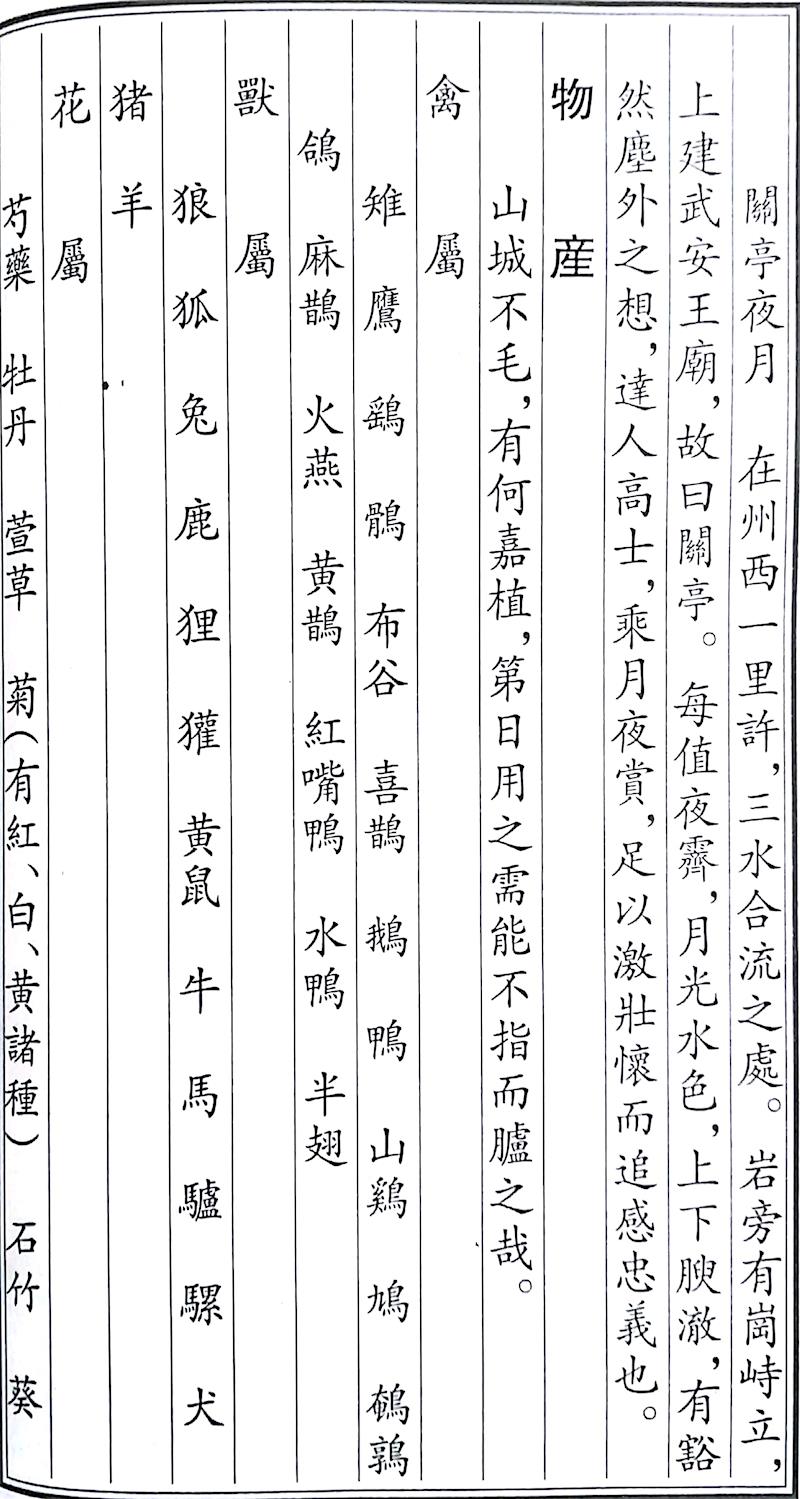 關亭夜月　在州西一里許，三水合流之處。岩旁有崗峙立，
上建武安王廟，故曰關亭。每值夜霽，月光水色，上下腴澈，有豁
然塵外之想，達人高士，乘月夜賞，足以激壯懷而追感忠義也。
物　産
山城不毛，有何嘉植，第日用之需能不指而臚之哉。
禽　屬
雉　鷹　鷂　鶻　布谷　喜鵲　鵝　鴨　山鷄　鳩　鵪鶉
鴿　麻鵲　火燕　黄鵲　紅嘴鴨　水鴨　半翅
獸　屬
狼　狐　兔　鹿　狸　獾　黄鼠　牛　馬　驢　騾　犬
猪　羊
花　屬
芍藥　牡丹　萱草　菊（有紅、白、黄諸種）　石竹　葵